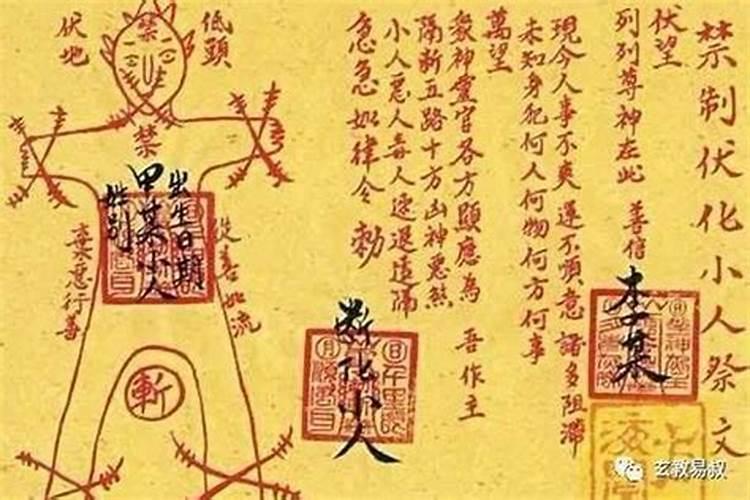 禁制伏化小人祭文
伏望
列列尊神在此 善信 李某
現今人事不爽 運不順意 諸多阻滯
未知身犯何人何物何方何事
萬望
眾神靈官各方顯應為 吾作主
隔斷五路十方凶神惡煞
小人惡人毒人速退遠隔
急急如律令 勅
斷化小人
低頭
伏地
禁
禁
出生日期
甲某小人
姓别
從善如流
棄惡行善
斬
玄教易叔